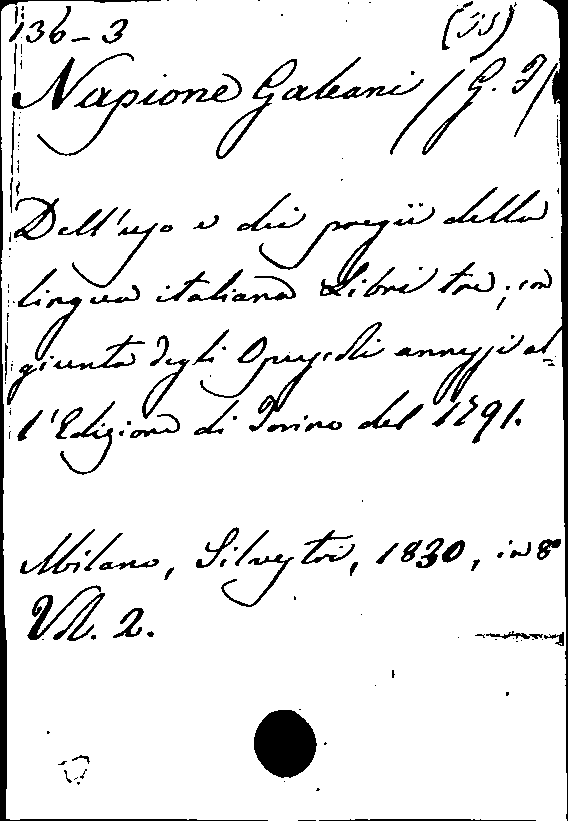 136-3
Napione Galeani (G. F)
Dell'uso e dei pregii della
lingua italiana Libri tre; con
giunta degli Opuscoli annessi al=
l'Edizione di Torino del 1791.
Milano, Silvestri, 1830, in 8°
Vol. 2.